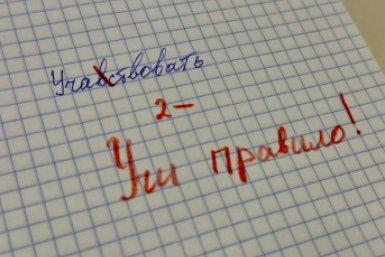 Учавствовать
2-
Учи правило!